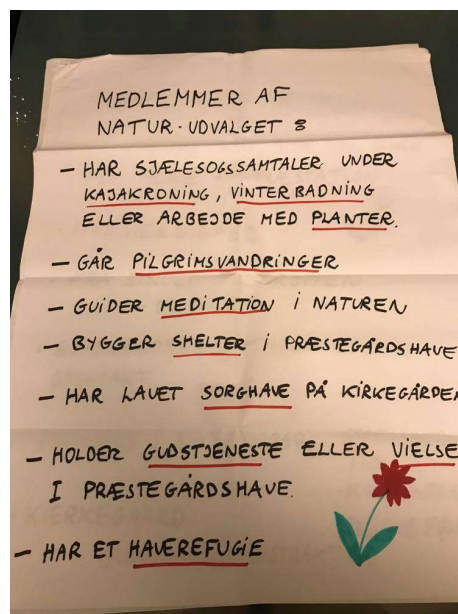 MEDLEMMER AF
NATUR-UDVALGET :
- HAR SJÆLESOGSSAMTALER UNDER
KAJAKRONING, VINTERBADNING
ELLER ARBEJDE MED PLANTER.
- GÅR PILGRIMSVANDRINGER
- GUIDER MEDITATION I NATUREN
- BYGGER SHELTER I PRÆSTEGÅRDSHAVE
- HAR LAVET SORGHAVE PÅ KIRKEGÅRDEN
- HOLDER GUDSTJENESTE ELLER VIELSE
I PRÆSTEGÅRDSHAVE.
- HAR ET HAVEREFUGIE